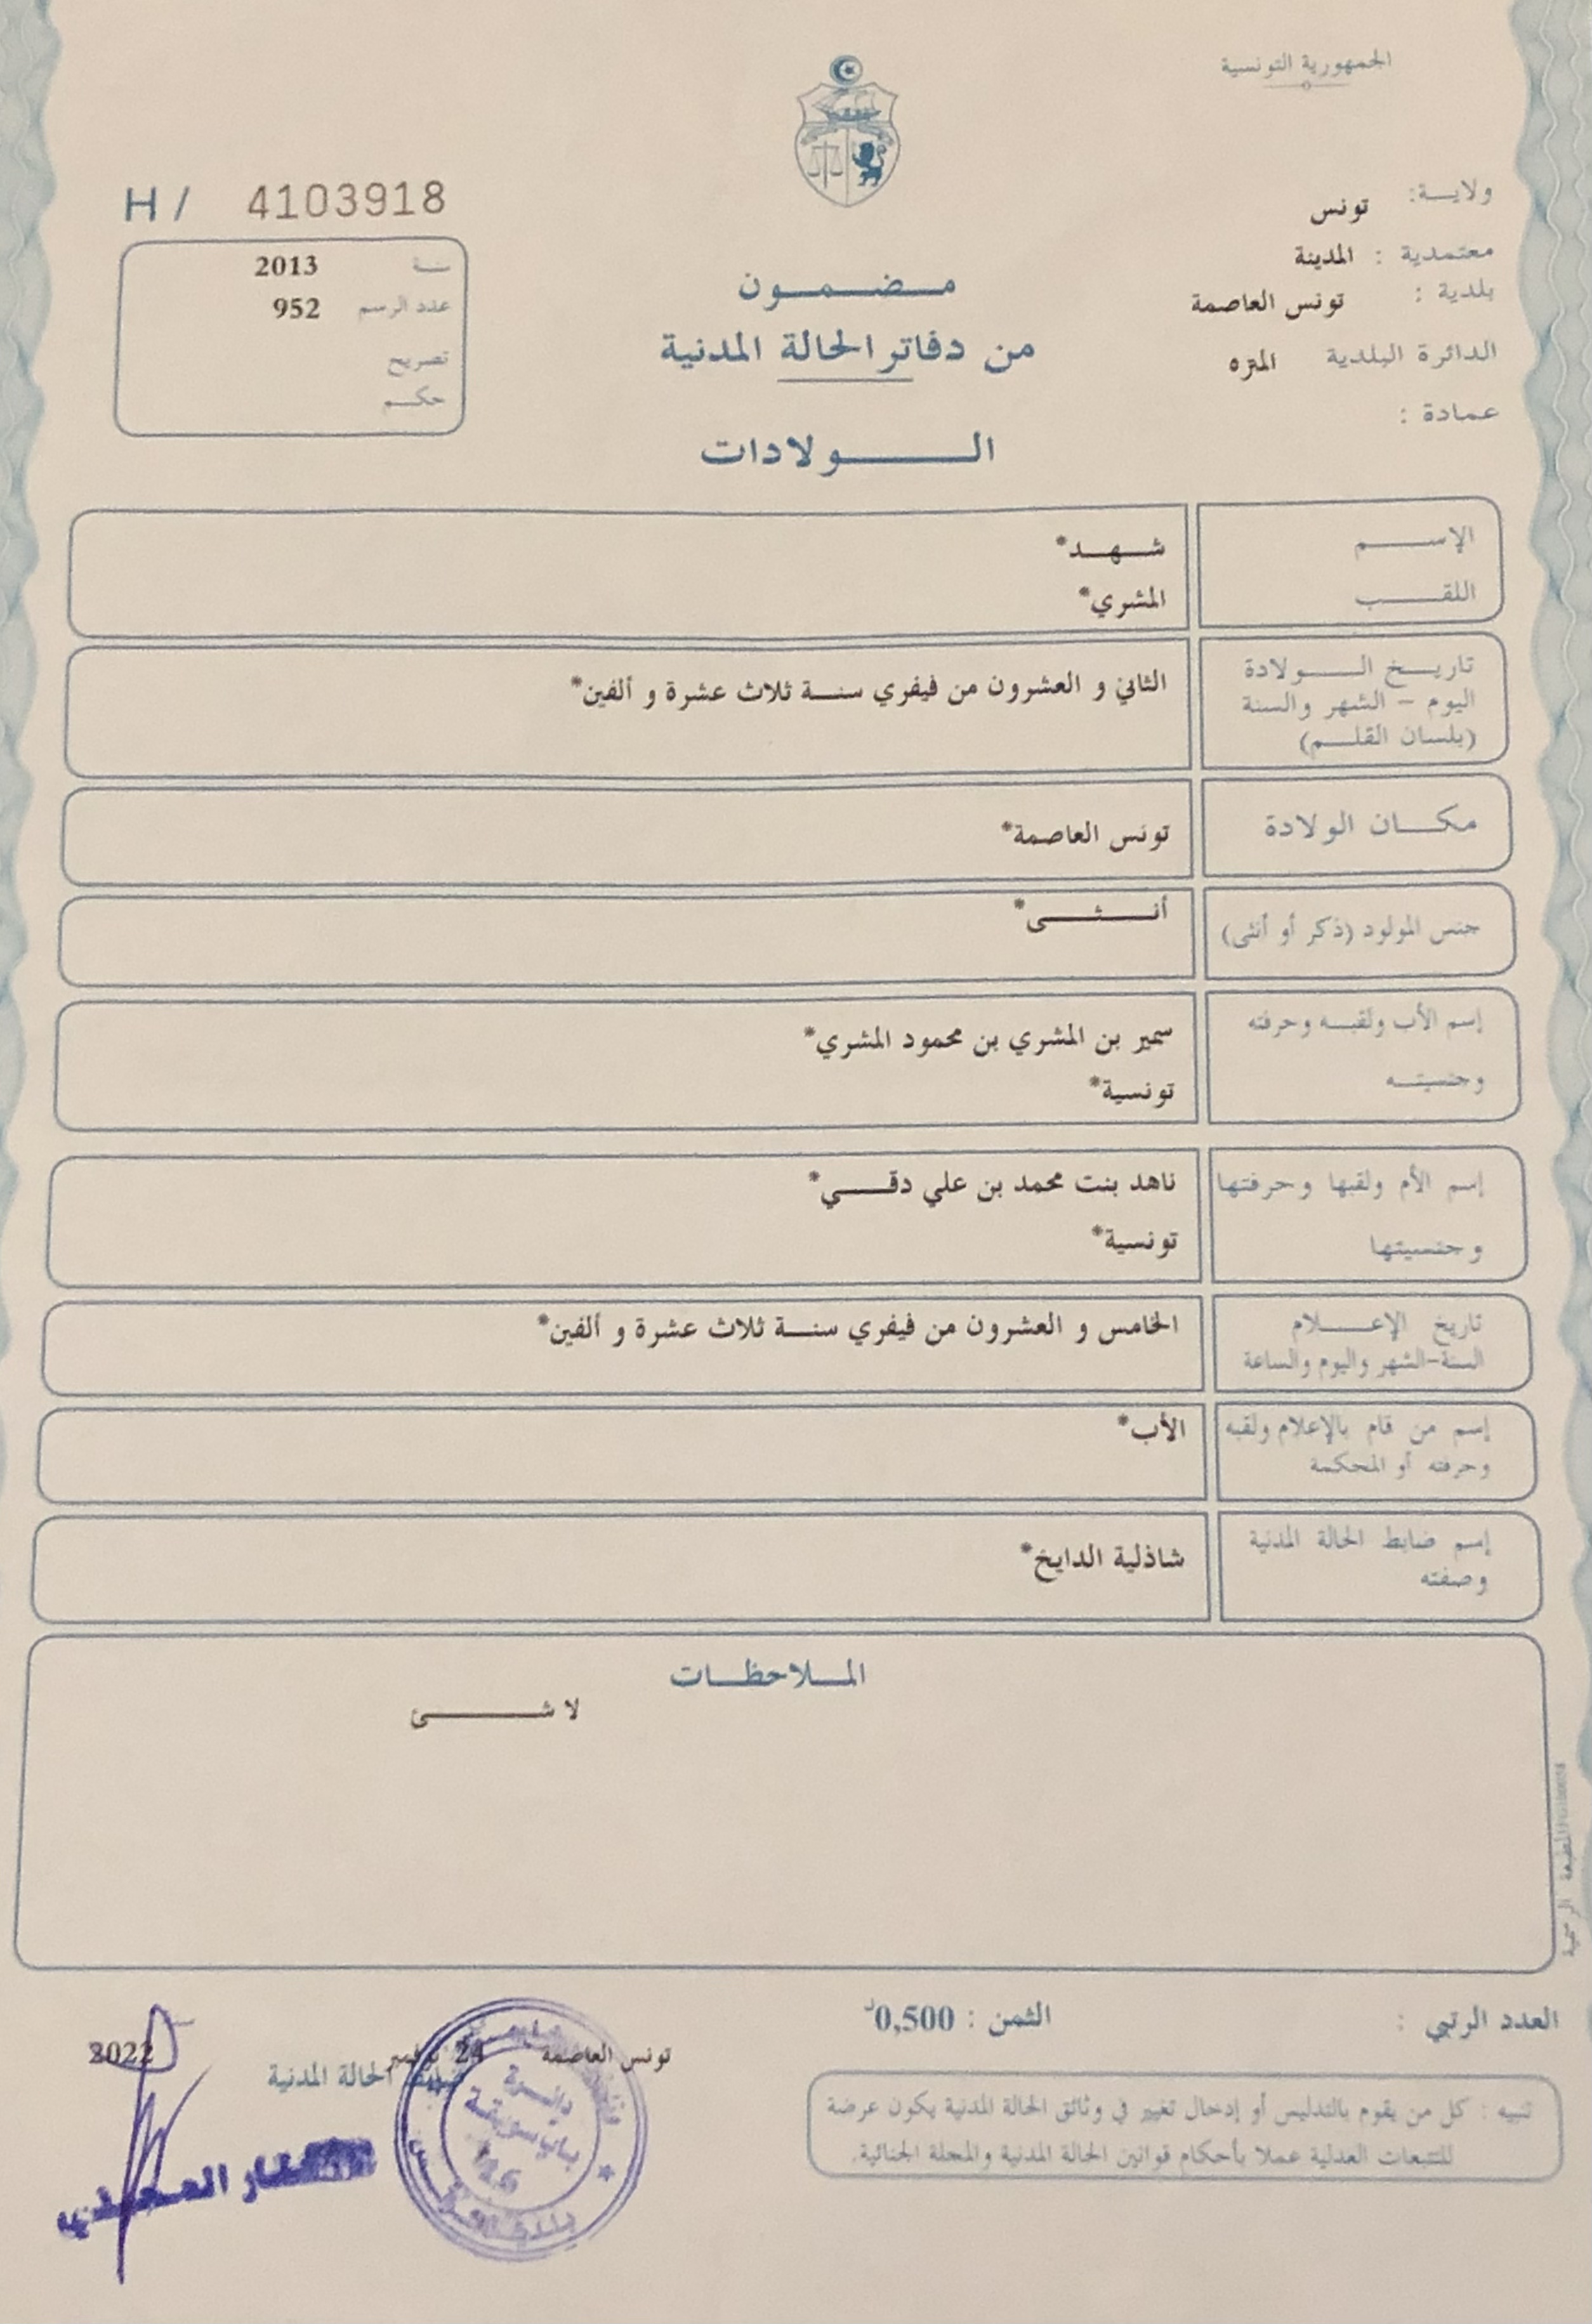 الجمهورية التونسية
ولاية: تونس
معتمدية : المدينة
بلدية : تونس العاصمة
الدائرة البلدية المنزه
عمادة :
H / 4103918
سنة 2013
عدد الرسم 952
تصريح
حكم
مضمون
من دفاتر الحالة المدنية
الولادات
الإسم شهد*
اللقب المشري*
تاريخ الولادة
اليوم – الشهر والسنة
(بلسان القلم)
الثاني و العشرون من فيفري سنة ثلاث عشرة و ألفين*
مكان الولادة تونس العاصمة*
جنس المولود (ذكر أو أنثى) أنثى*
إسم الأب ولقبه وحرفته سمير بن المشري بن محمود المشري*
وجنسيته تونسية*
إسم الأم ولقبها وحرفتها ناهد بنت محمد بن علي دقي*
وجنسيتها تونسية*
تاريخ الإعلام الخامس و العشرون من فيفري سنة ثلاث عشرة و ألفين*
السنة-الشهر واليوم والساعة
إسم من قام بالإعلام ولقبه الأب*
وحرفته أو المحكمة
إسم ضابط الحالة المدنية شاذلية الدايخ*
وصفته
الملاحظات
لا شئ
المطبعة الرسمية
العدد الرتبي :
الثمن : 0,500د
تنبيه : كل من يقوم بالتدليس أو إدخال تغيير في وثائق الحالة المدنية يكون عرضة
للتتبعات العدلية عملا بأحكام قوانين الحالة المدنية والمجلة الجنائية.
تونس العاصمة 24 نوفمبر 2022
ضابط الحالة المدنية
دائرة
باب سويقة